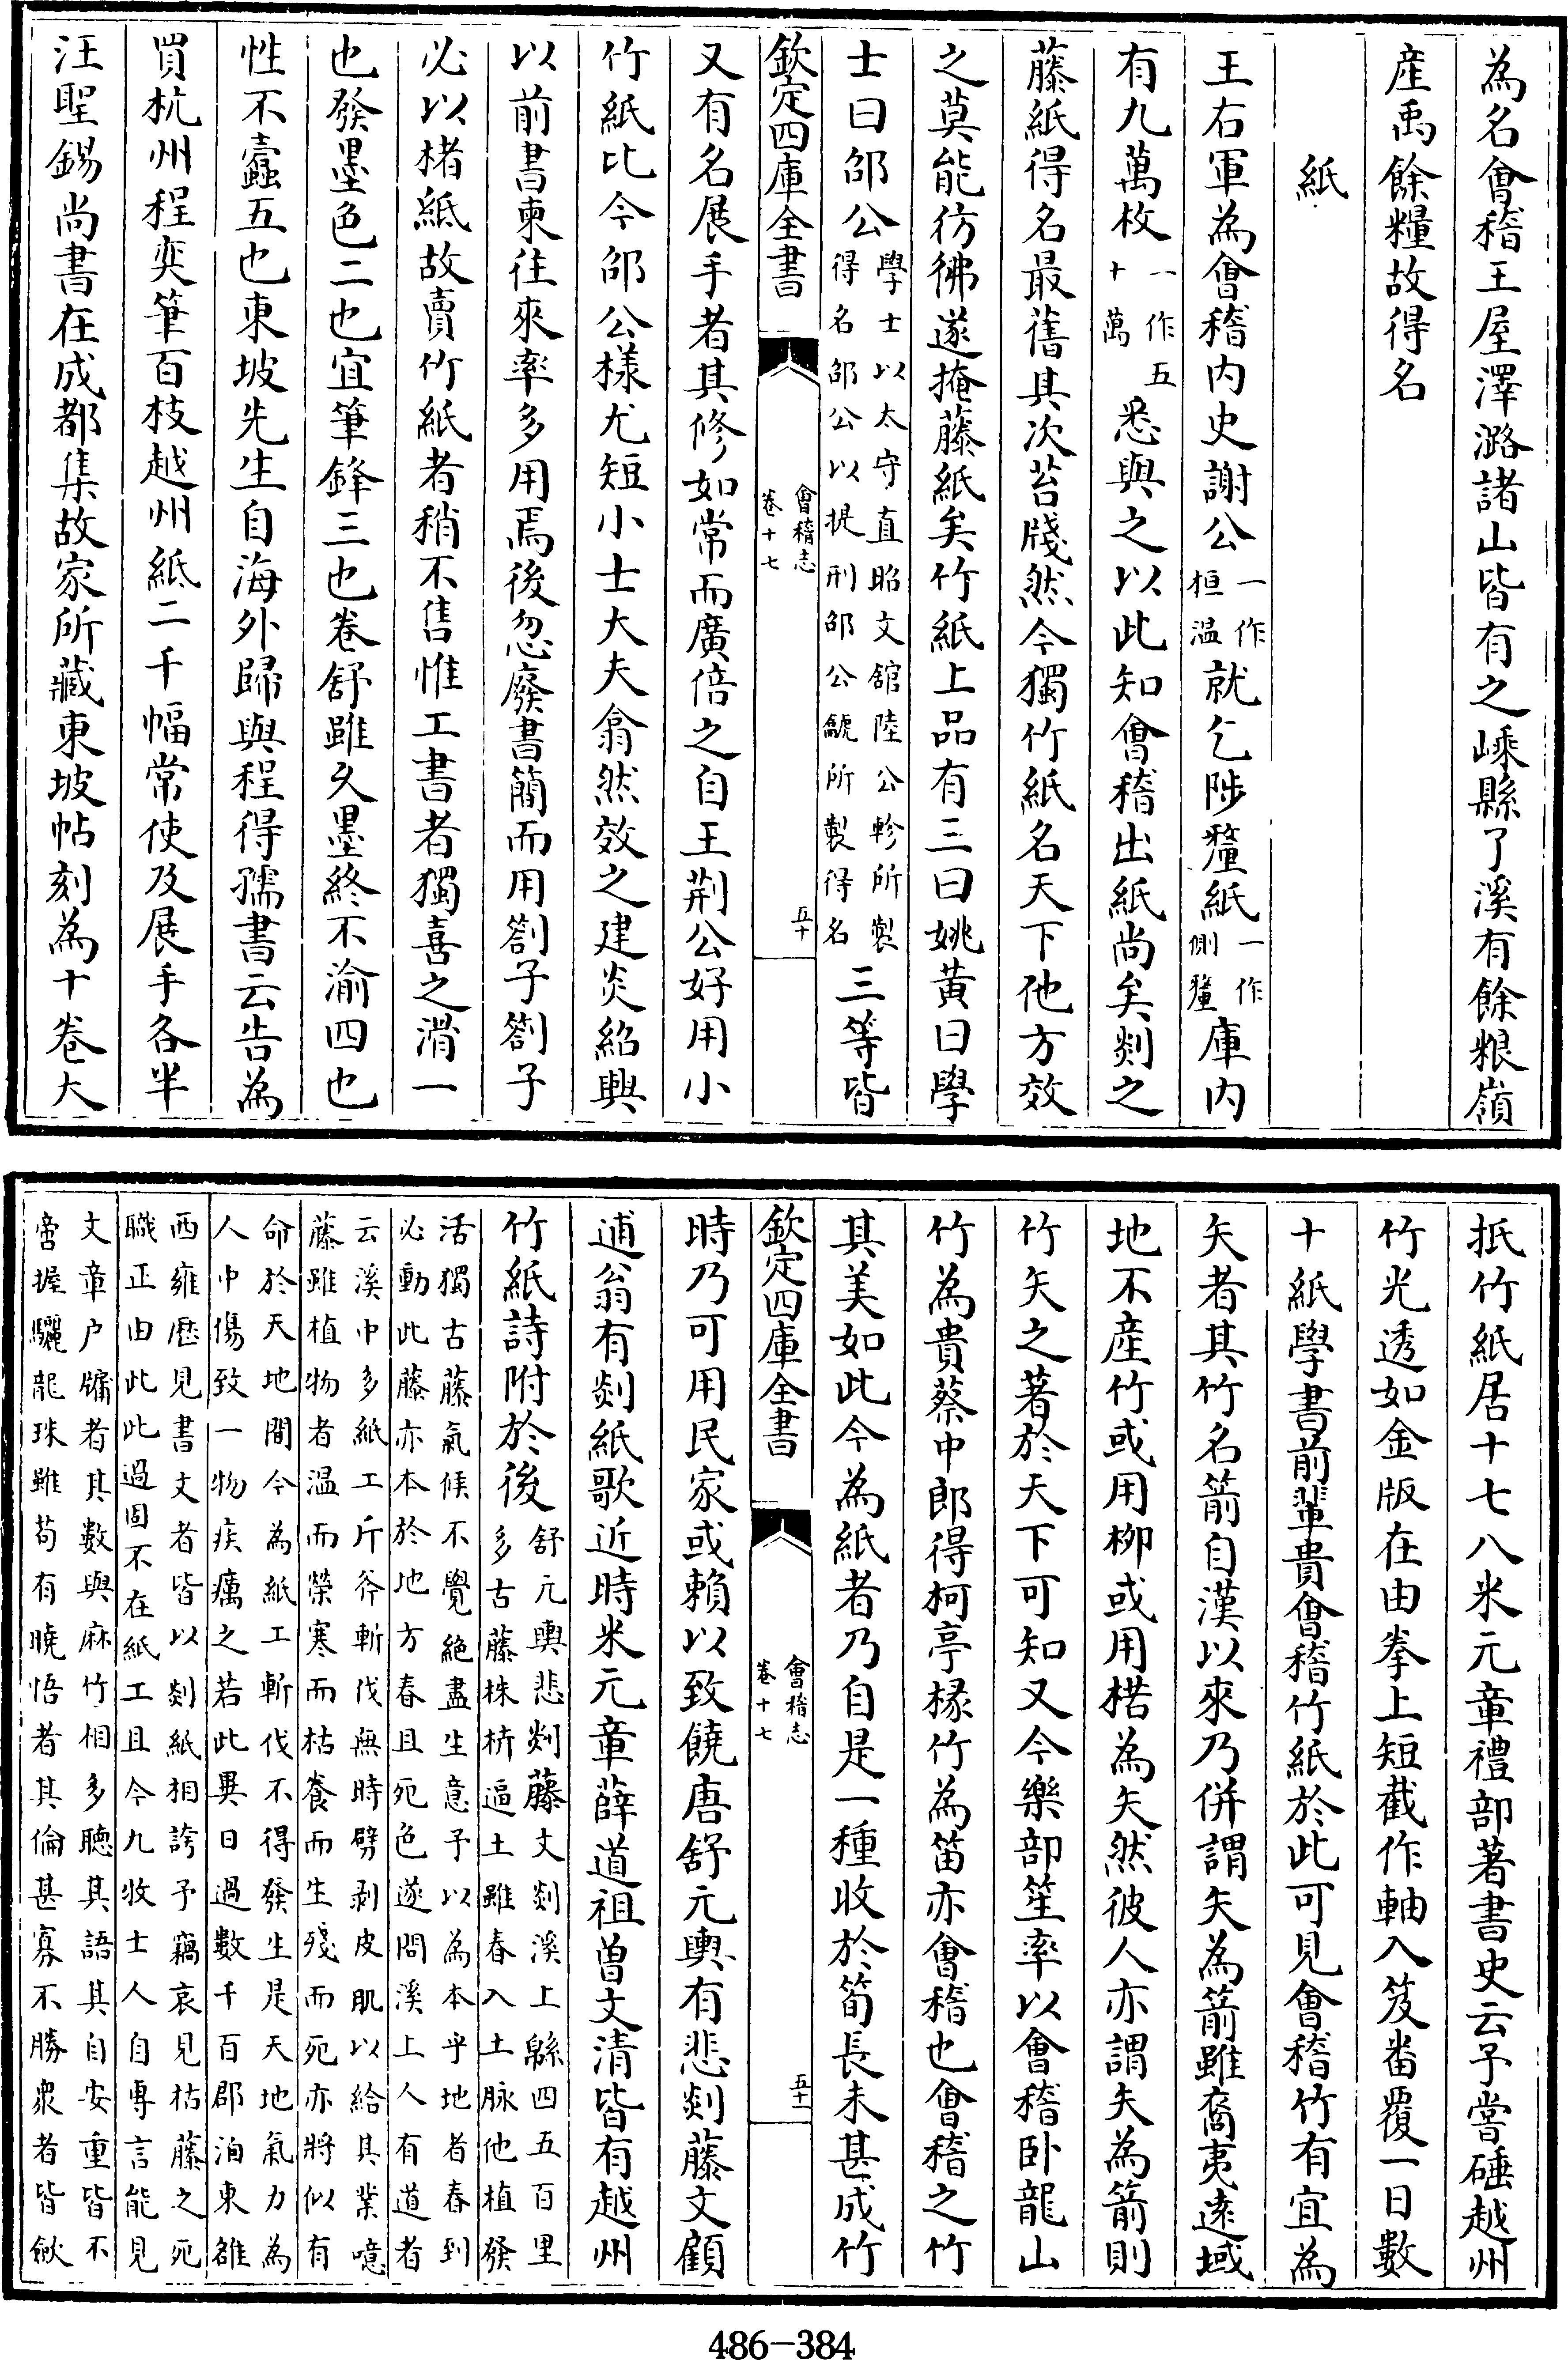 為名會稽王屋澤潞諸山皆有之嵊縣了溪有餘粮嶺
産禹餘糧故得名
紙
王右軍為會稽内史謝公一作桓温就乞陟釐紙一作側釐庫内
有九萬枚一作五十萬悉與之以此知會稽出紙尚矣剡之
藤紙得名最舊其次苔牋然今獨竹紙名天下他方效
之莫能彷彿遂掩藤紙矣竹紙上品有三曰姚黄曰學
士曰邵公學士以太守直昭文館陸公軫所製得名邵公以提刑邵公觤所製得名三等皆
欽定四庫全書
會稽志
卷十七
五十
又有名展手者其修如常而廣倍之自王荆公好用小
竹紙比今邵公様尤短小士大夫翕然效之建炎紹興
以前書柬往來率多用焉後忽廢書簡而用劄子劄子
必以楮紙故賣竹紙者稍不售惟工書者獨喜之滑一
也發墨色二也宜筆鋒三也卷舒雖久墨終不渝四也
性不蠧五也東坡先生自海外歸與程得孺書云告為
買杭州程奕筆百枝越州紙二千幅常使及展手各半
汪聖錫尚書在成都集故家所藏東坡帖刻為十卷大
抵竹紙居十七八米元章禮部著書史云予嘗硾越州
竹光透如金版在由拳上短截作軸入笈畨覆一日數
十紙學書前輩貴會稽竹紙於此可見會稽竹有宜為
矢者其竹名箭自漢以來乃併謂矢為箭雖裔夷逺域
地不産竹或用柳或用楛為矢然彼人亦謂矢為箭則
竹矢之著於天下可知又今樂部笙率以會稽卧龍山
竹為貴蔡中郎得柯亭椽竹為笛亦會稽也會稽之竹
其美如此今為紙者乃自是一種收於筍長未甚成竹
欽定四庫全書
會稽志
卷十七
五十一
時乃可用民家或賴以致饒唐舒元輿有悲剡藤文顧
逋翁有剡紙歌近時米元章薛道祖曾文清皆有越州
竹紙詩附於後舒元輿悲剡藤文剡溪上緜四五百里
多古藤株枿逼土雖春入土脉他植發
活獨古藤氣候不覺絶盡生意予以為本乎地者春到
必動此藤亦本於地方春且死色遂問溪上人有道者
云溪中多紙工斤斧斬伐無時劈剥皮肌以給其業噫
藤雖植物者温而榮寒而枯養而生殘而死亦將似有
命於天地間今為紙工斬伐不得發生是天地氣力為
人中傷致一物疾癘之若此異日過數千百郡洎東雒
西雍歴見書文者皆以剡紙相誇予竊哀見枯藤之死
職正由此此過固不在紙工且今九牧士人自專言能見
文章户牖者其數與麻竹相多聴其語其自安重皆不
啻握驪龍珠雖苟有曉悟者其倫甚寡不勝衆者皆歛
486-384